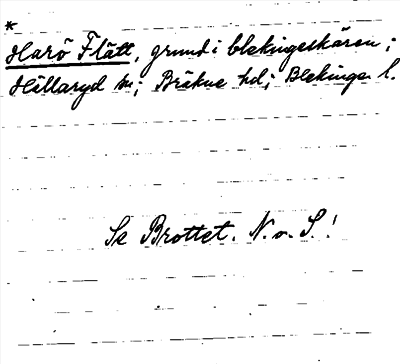 *
Harö Flätt, grund i blekingeskären;
Hällaryd sn; Bräkne hd; Blekinge l.
Se Brottet. N. o. S.!